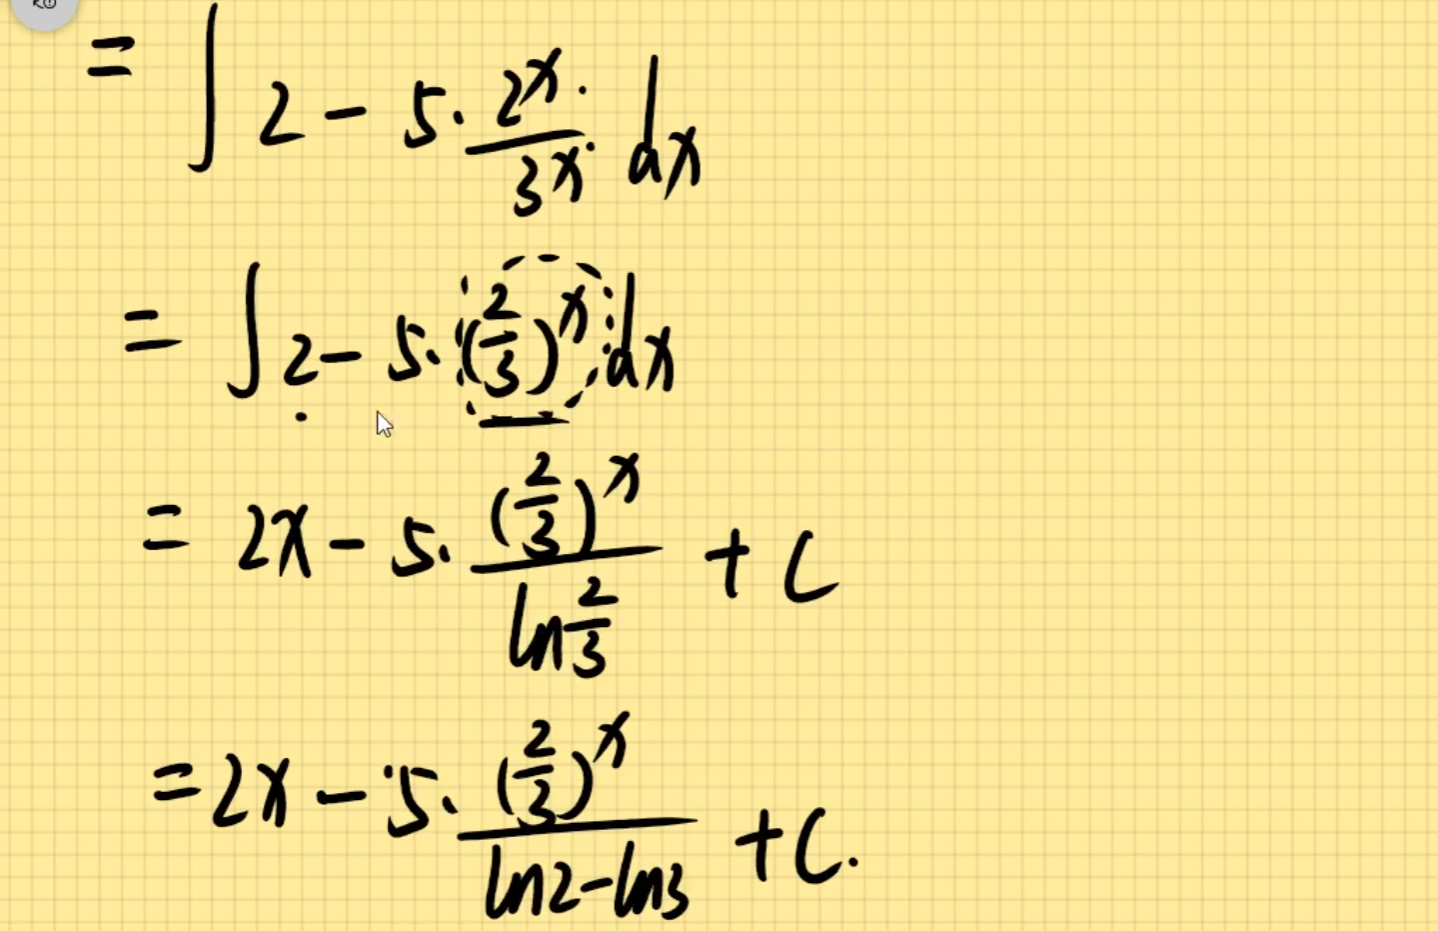 = ∫ 2 - 5 · 2^x / 3^x dx
= ∫ 2 - 5 · (2/3)^x dx
= 2x - 5 · (2/3)^x / ln 2/3 + C
= 2x - 5 · (2/3)^x / ln2 - ln3 + C.